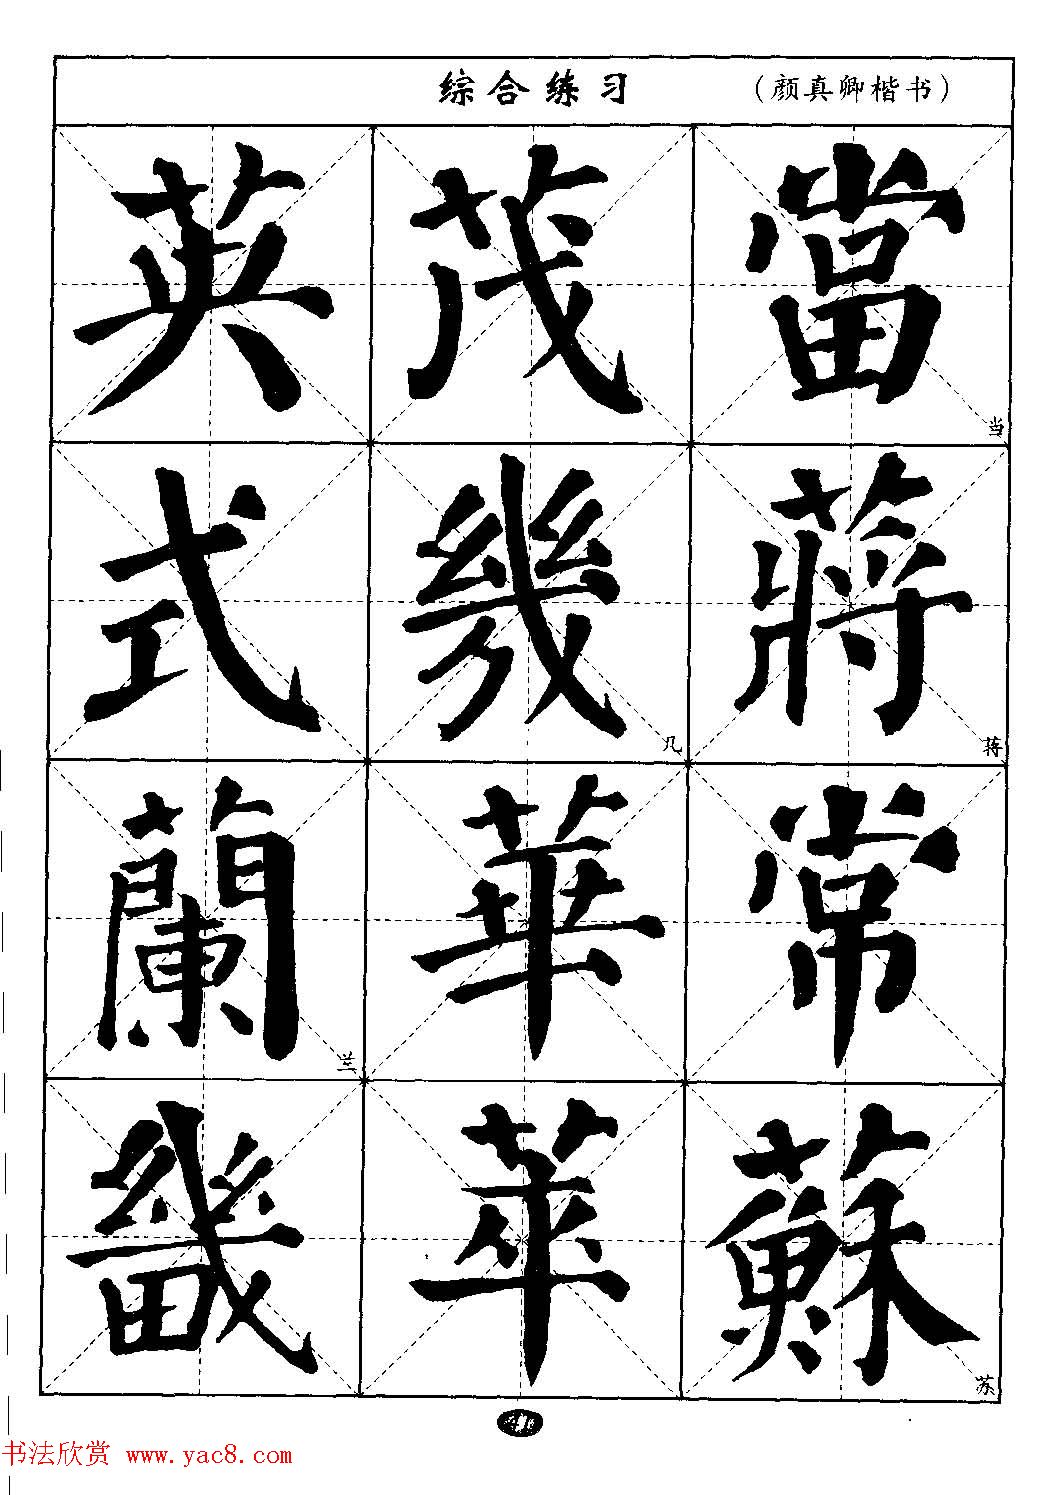 综合练习 (颜真卿楷书)
英 茂 當 当
式 幾 几 蔣 蒋
蘭 兰 華 常
畿 萃 蘇 苏
41
书法欣赏 www.yac8.com